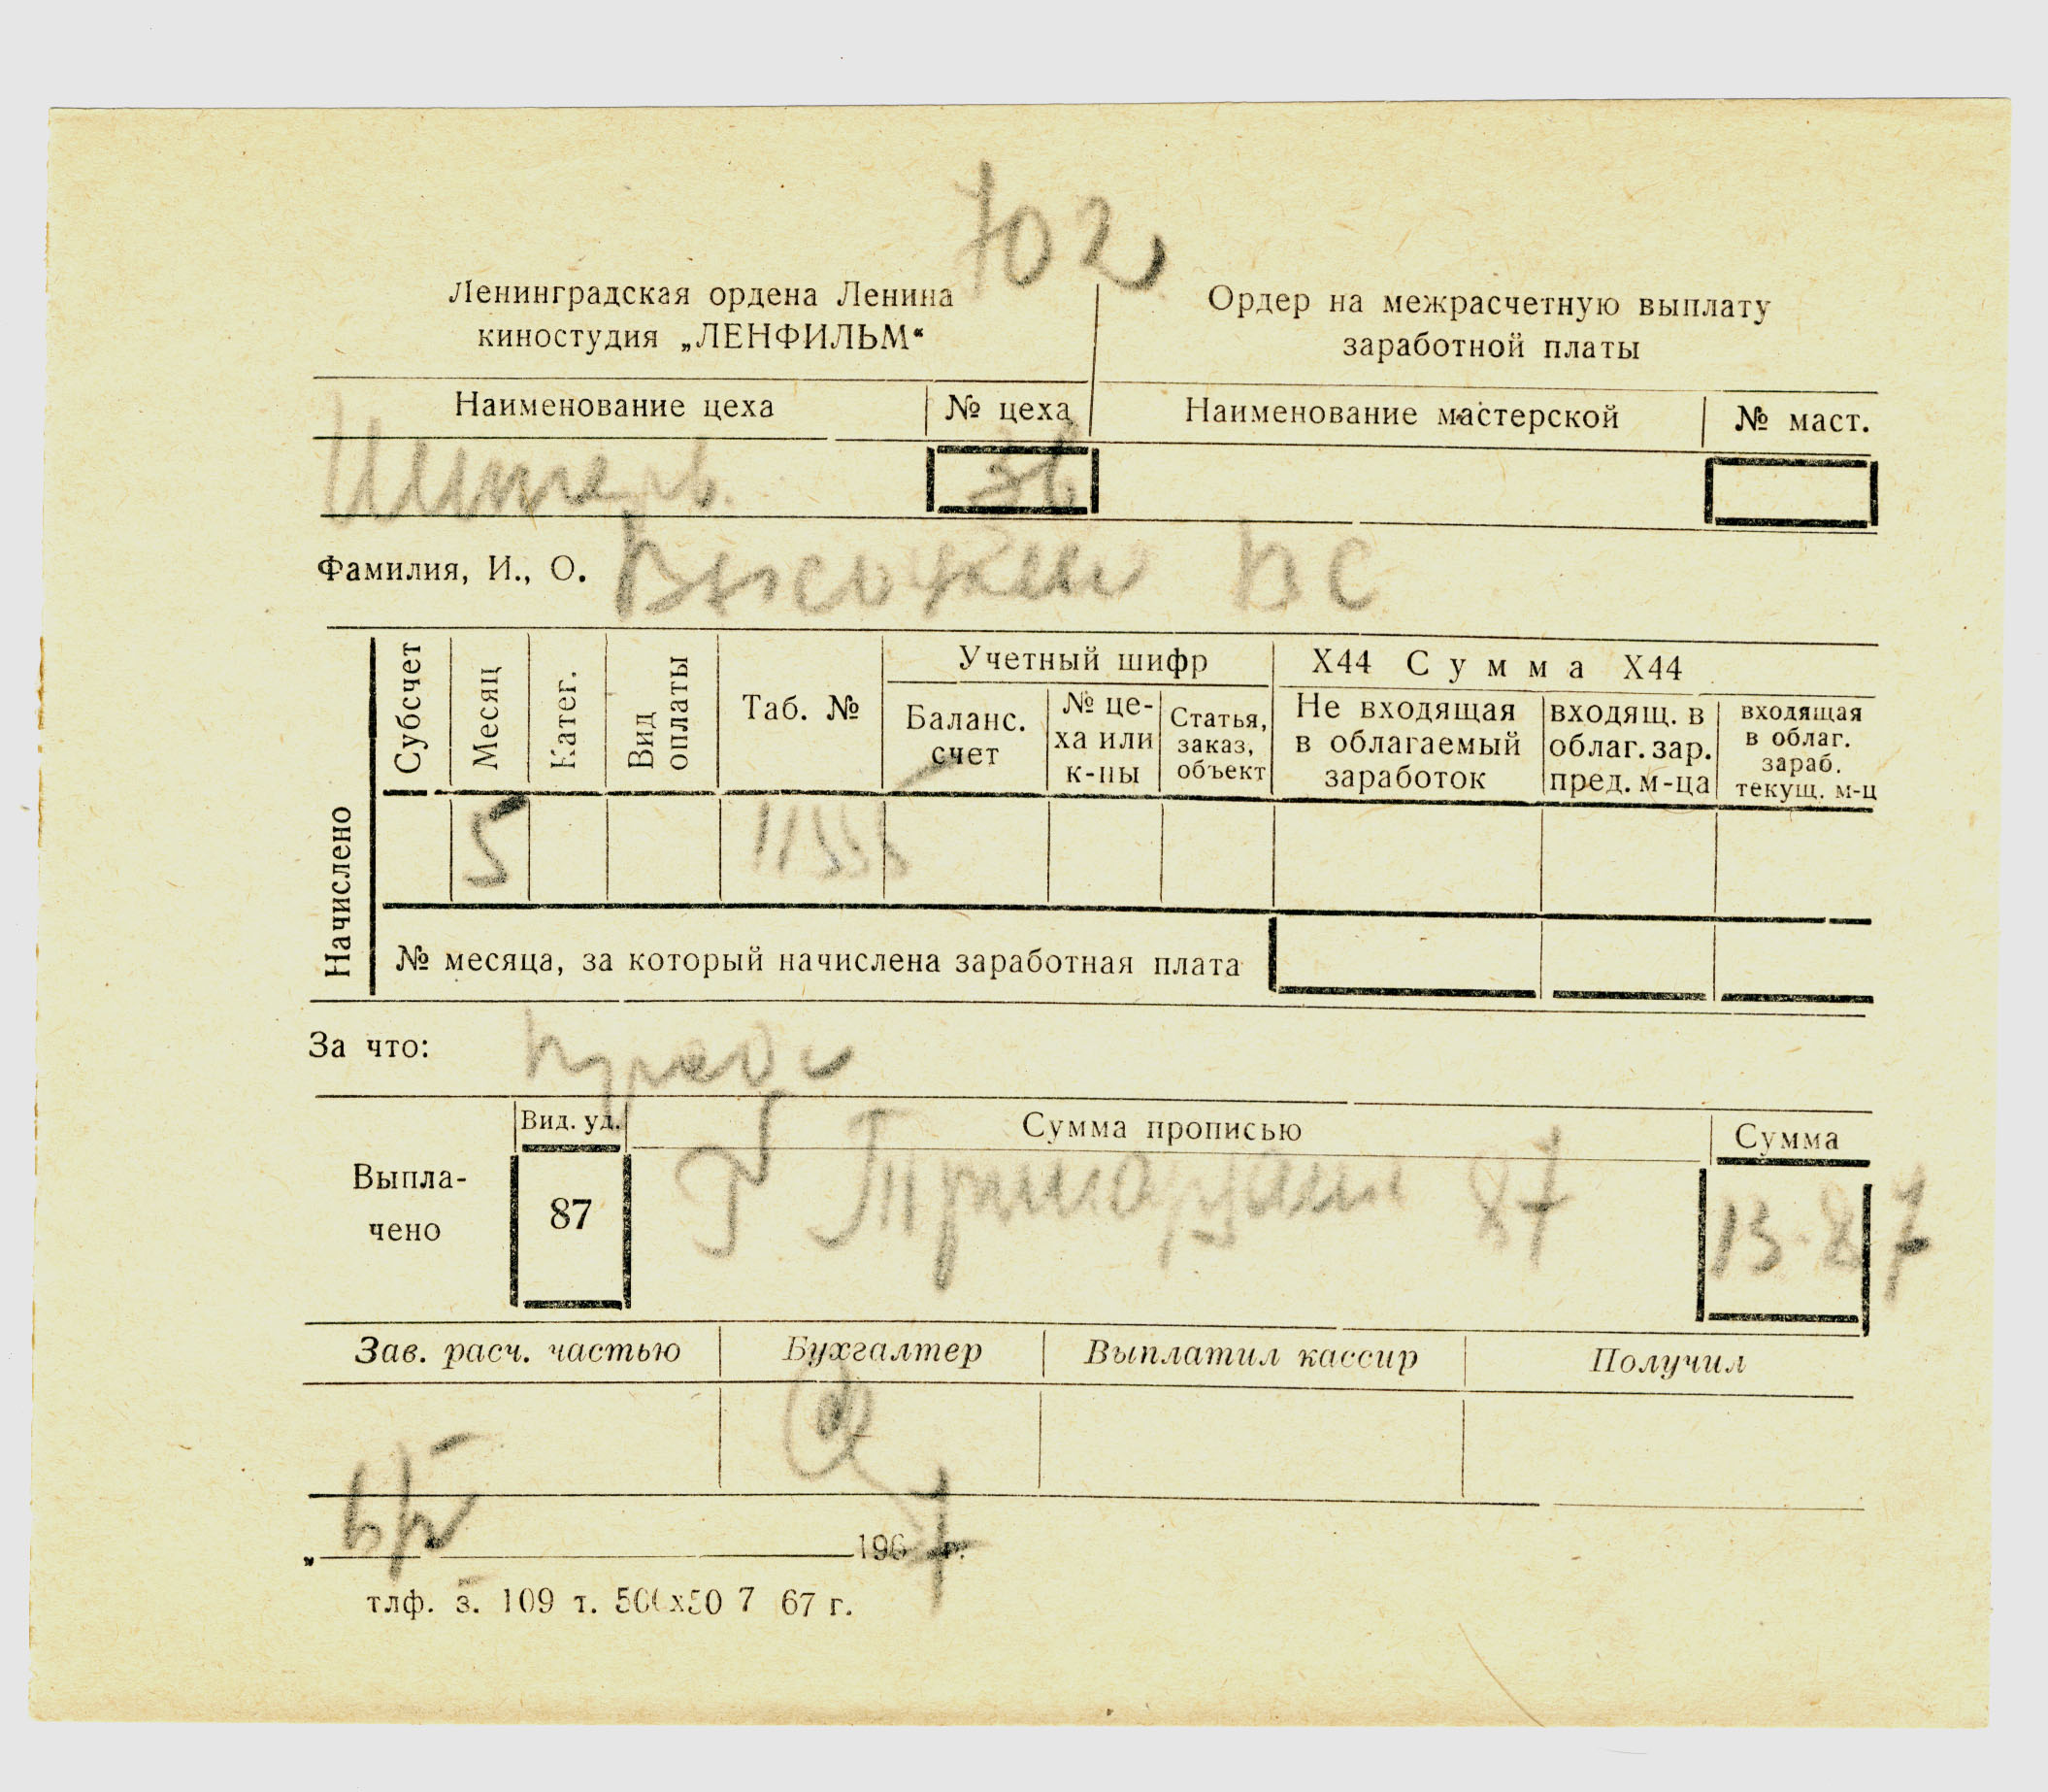 702
Ленинградская ордена Ленина
киностудия „ЛЕНФИЛЬМ“
Ордер на межрасчетную выплату
заработной платы
Наименование цеха № цеха Наименование мастерской № маст.
Фамилия, И., О. ВС
Начислено
Субсчет Месяц Катег. Вид оплаты Таб. № Учетный шифр Х44 Сумма Х44
Баланс. счет № це-ха или к-пы Статья, заказ, объект Не входящая в облагаемый заработок входящ. в облаг. зар. пред. м-ца входящая в облаг. зараб. текущ. м-ц
5
№ месяца, за который начислена заработная плата
За что:
Вид. уд. Сумма прописью Сумма
Выпла-
чено
87 87 13-87
Зав. расч. частью Бухгалтер Выплатил кассир Получил
„ 1967 г.
тлф. з. 109 т. 500х50 7 67 г.